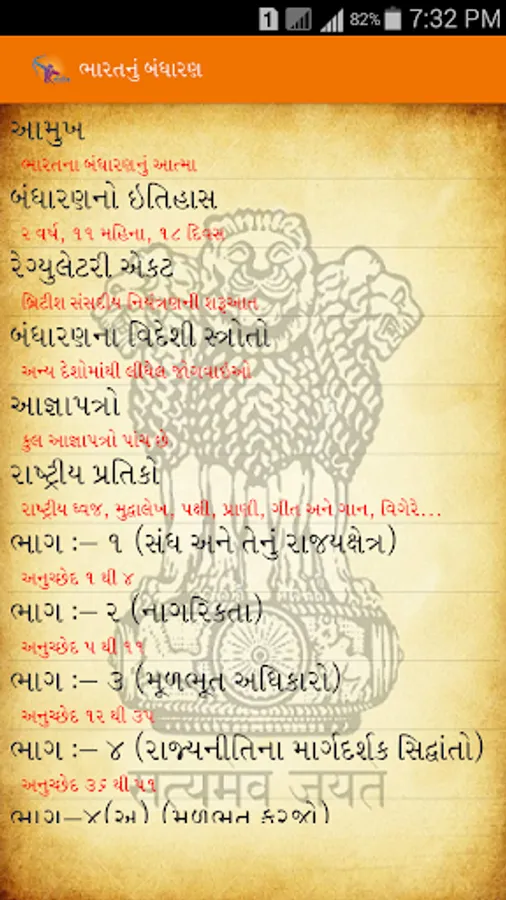 1 82% 7:32 PM
ભારતનું બંધારણ
આમુખ
ભારતના બંધારણનું આત્મા
બંધારણનો ઇતિહાસ
૨ વર્ષ, ૧૧ મહિના, ૧૮ દિવસ
રેગ્યુલેટરી એકટ
બ્રિટીશ સંસદીય નિયંત્રણની શરૂઆત
બંધારણના વિદેશી સ્ત્રોતો
અન્ય દેશોમાંથી લીધેલ જોગવાઇઓ
આજ્ઞાપત્રો
કુલ આજ્ઞાપત્રો પાંચ છે
રાષ્ટ્રીય પ્રતિકો
રાષ્ટ્રીય ધ્વજ, મુદ્રાલેખ, પક્ષી, પ્રાણી, ગીત અને ગાન, વિગેરે...
ભાગ :– ૧ (સંઘ અને તેનું રાજયક્ષેત્ર)
અનુચ્છેદ ૧ થી ૪
ભાગ :– ૨ (નાગરિકતા)
અનુચ્છેદ ૫ થી ૧૧
ભાગ :– ૩ (મૂળભૂત અધિકારો)
અનુચ્છેદ ૧૨ થી ૩૫
ભાગ :– ૪ (રાજ્યનીતિના માર્ગદર્શક સિદ્વાંતો)
અનુચ્છેદ ૩૬ થી ૫૧
सत्यमेव जयते
ભાગ–૪(અ) (મૂળભૂત ફરજો)